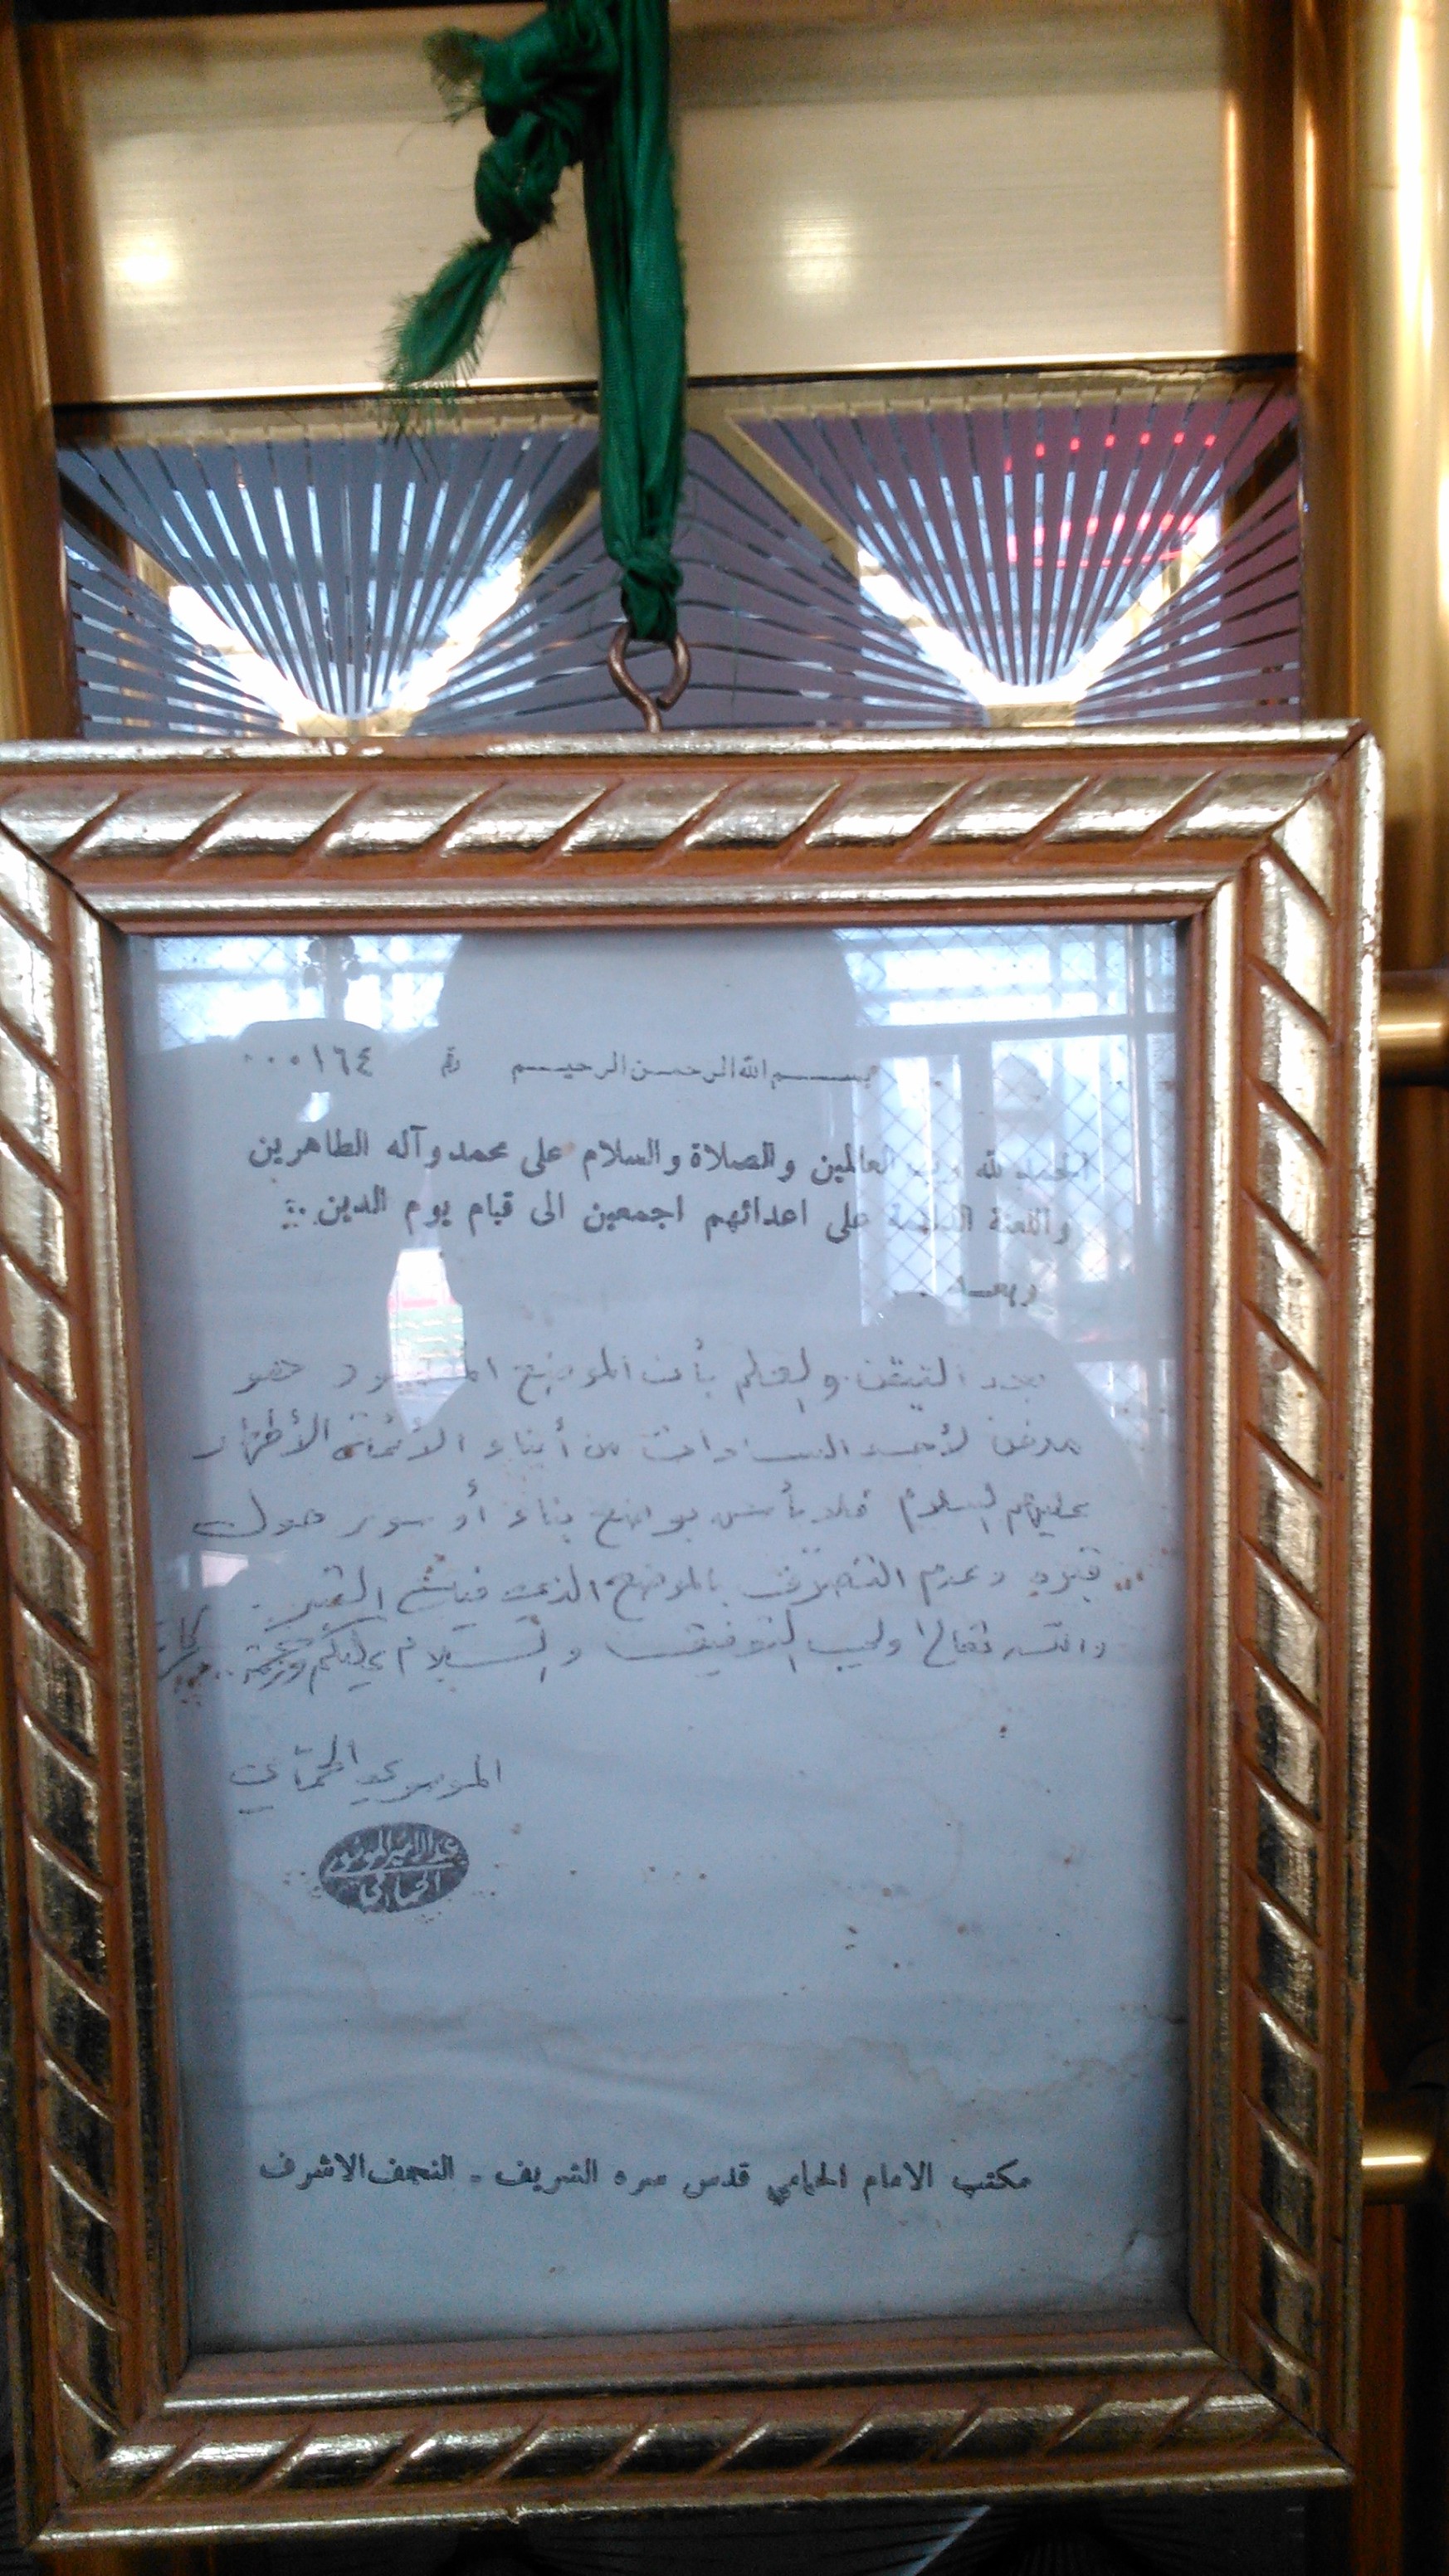 بسم الله الرحمن الرحيم رقم ٠٠٠١٦٤
الحمد لله رب العالمين والصلاة والسلام على محمد وآله الطاهرين
واللعنة الدائمة على اعدائهم اجمعين الى قيام يوم الدين
وبعد
بعد التيقن والعلم بأن الموضع هو
مدفن لأحد السادات من أبناء الأئمة الأطهار
عليهم السلام فلا بأس بوضع بناء أو سور حول
قبره وعدم التصرف بالموضع الذي فيه القبر
والله تعالى ولي التوفيق والسلام عليكم ورحمة
الموسوي الحمامي
عبد الامير الموسوي
الحمامي
مكتب الامام الحمامي قدس سره الشريف - النجف الاشرف